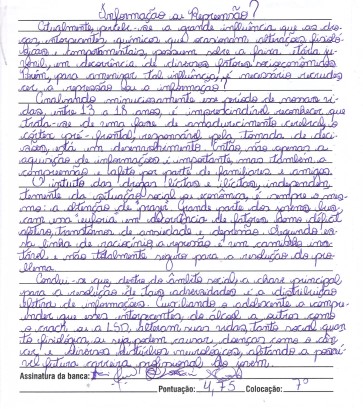 Informação ou Repressão?
Atualmente, percebe-se a grande influência que as dro-
gas, interpentes químicos que ocasionam alterações fisioló-
gicas e comportamentais, possuem sobre a faixa etária ju-
venil, em decorrência de diversos fatores socioeconômicos.
Porém, para amenizar tal influência, é necessário recrudes-
cer a repressão ou a informação?
Analisando minuciosamente um período de nossas vi-
das, entre 12 a 18 anos, é imprescindível reconhecer que
trata-se de uma fase de amadurecimento cerebral, o
córtex pré-frontal, responsável pela tomada de deci-
sões, está em desenvolvimento. Então, não apenas a
aquisição de informações é importante, mas também a
compreensão e afeto por parte de familiares e amigos.
O intuito das drogas lícitas e ilícitas, independen-
temente da situação social ou econômica, é sempre o mes-
mo: a atenção da massa. Grande parte dos jovens bus-
cam uma "euforia" em decorrência de fatores como déficit
afetivo, transtornos de ansiedade e depressão. Seguindo es-
sa linha de raciocínio, a repressão é um caminho ins-
tável e não totalmente seguro para a resolução do pro-
blema.
Conclui-se que, dentro do âmbito social, a chave principal
para a resolução de tais adversidades é a distribuição
efetiva de informações. Corroborando o adolescente a compre-
ender que usos interpentes do álcool a outros como
o crack ou a LSD, alteram suas vidas, tanto social quan-
to fisiológica, ou seja, podem causar doenças como o cân-
cer, e diversos distúrbios neurológicos, afetando a possí-
vel futura carreira profissional do jovem.
Assinatura da banca:
Pontuação: 4,75 Colocação: 7º